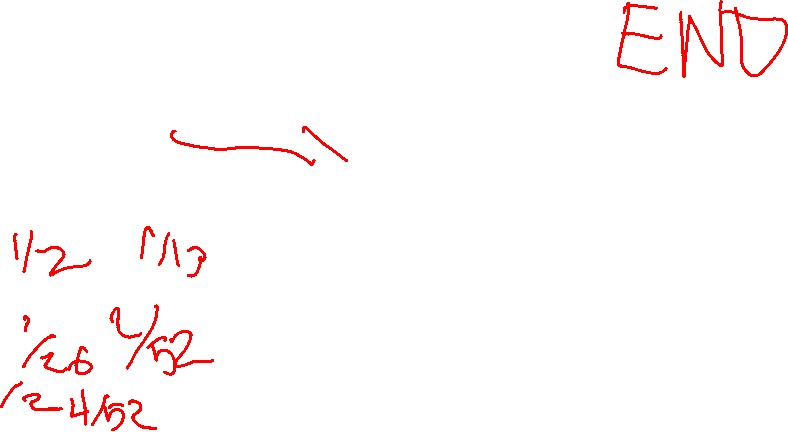 END
1/2 1/13
1/26 2/52
1/2 4/52